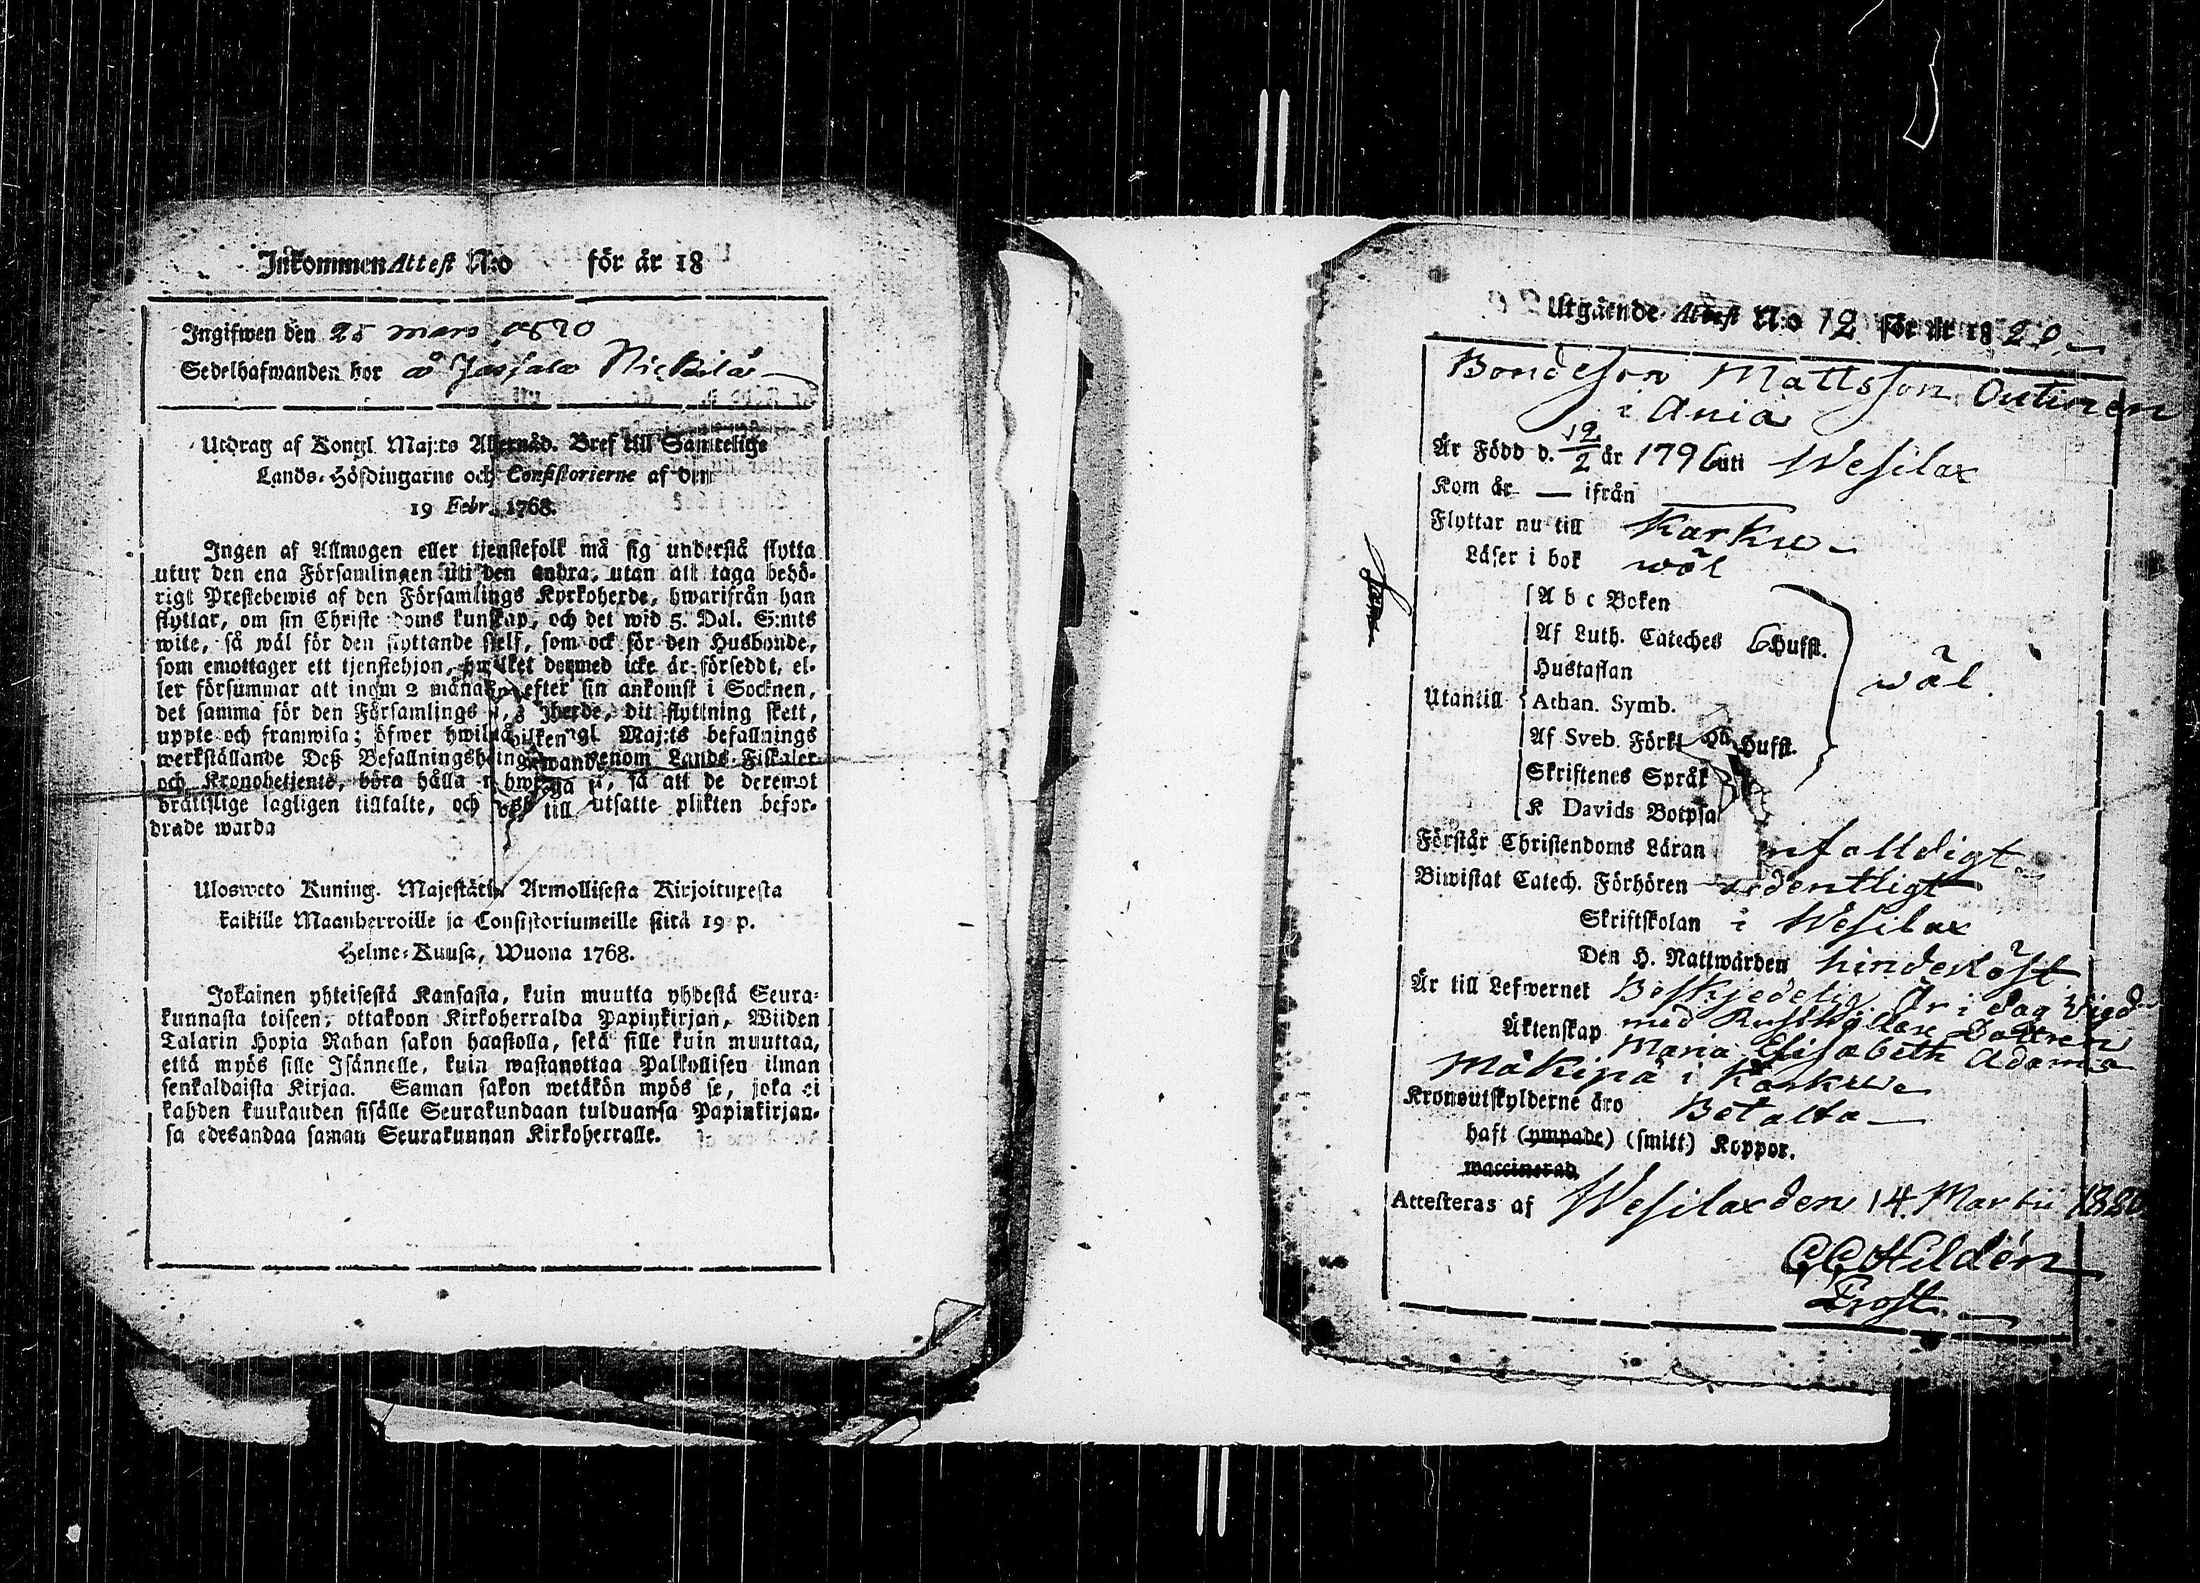 Inkommen Attest N:o för år 18
Ingifwen den 25 mars 1820
Sedelhafwanden bor å Jassala Nickilä
Utdrag af Kongl. Maj:ts Allernåd. Bref till Samtelige
Lands-Höfdingarne och Consistorierne af den
19 Febr. 1768.
Ingen af Allmogen eller tjenstefolk må sig understå flytta
utur den ena Församlingen uti den andra, utan att taga behö-
rigt Prestebewis af den Församlings Kyrkoherde, hwarifrån han
flyttar, om sin Christendoms kunskap, och det wid 5. Dal. S:mts
wite, så wäl för den flyttande sjelf, som ock för den Husbonde,
som emottager ett tjenstehjon, hwilket dermed icke är försedt, el-
ler försummar att inom 2 månader efter sin ankomst i Socknen,
det samma för den Församlings herde, dit flyttning skett,
uppte och framwisa; öfwer hwilken gl. Maj:ts befallnings
werkställande Deß Befallningshafwande genom Lands-Fiskaler
och Kronobetjente, böra hålla hwarjaga så att de deremot
brättslige lagligen tilltalte, och till utsatte plikten befor-
drade warda
Ulosweto Kuning. Majestätin Armollisesta Kirjoituxesta
kaikille Maanherroille ja Consistoriumeille siitä 19 p.
Helme-Kuusa, Wuona 1768.
Jokainen yhteisestä Kansasta, kuin muutta yhdestä Seura-
kunnasta toiseen, ottakoon Kirkoherralda Papinkirjan, Wiiden
Talarin Hopia Rahan sakon haastolla, sekä sille kuin muuttaa,
että myös sille Isännelle, kuin wastanottaa Palkollisen ilman
senkaldaista Kirjaa. Saman sakon wetäkön myös se, joka ei
kahden kuukauden sisälle Seurakundaan tulduansa Papinkirjan-
sa edesandaa saman Seurakunnan Kirkoherralle.
Utgående Attest N:o 12 för år 1820
Bondeson Mattsson Outinen
i Ania
Är Född d. 12/2 år 1796 uti Wesilax
Kom år — ifrån —
Flyttar nu till Karku
Läser i bok wäl
Utantill
A b c Boken
Af Luth. Cateches 6 Hufst.
Hustaflan
Athan. Symb.
Af Sveb. Förkl Hufst.
Skriftenes Språk
K Davids Botpsal
wäl.
Förstår Christendoms Läran nfalldigt
Biwistat Catech. Förhören ordentligt
Skriftskolan i Wesilax
Den H. Nattwarden hinderlöst
Är till Lefwernet Beskjedelig. Är i dag Vigd
Äktenskap med Rusthållare Dottren
Maria Elisabeth Adams
Mäkipä i Karku
Kronoutskylderne äro Betalta
haft (ympade) (smitt) Koppor.
waccinerad
Attesteras af Wesilax den 14. Martii 1820
CC Hildén
Prost.